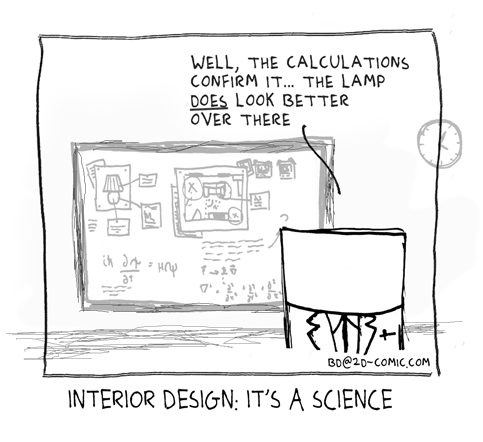 WELL, THE CALCULATIONS
CONFIRM IT... THE LAMP
DOES LOOK BETTER
OVER THERE
?
BD@2D-COMIC.COM
INTERIOR DESIGN: IT'S A SCIENCE